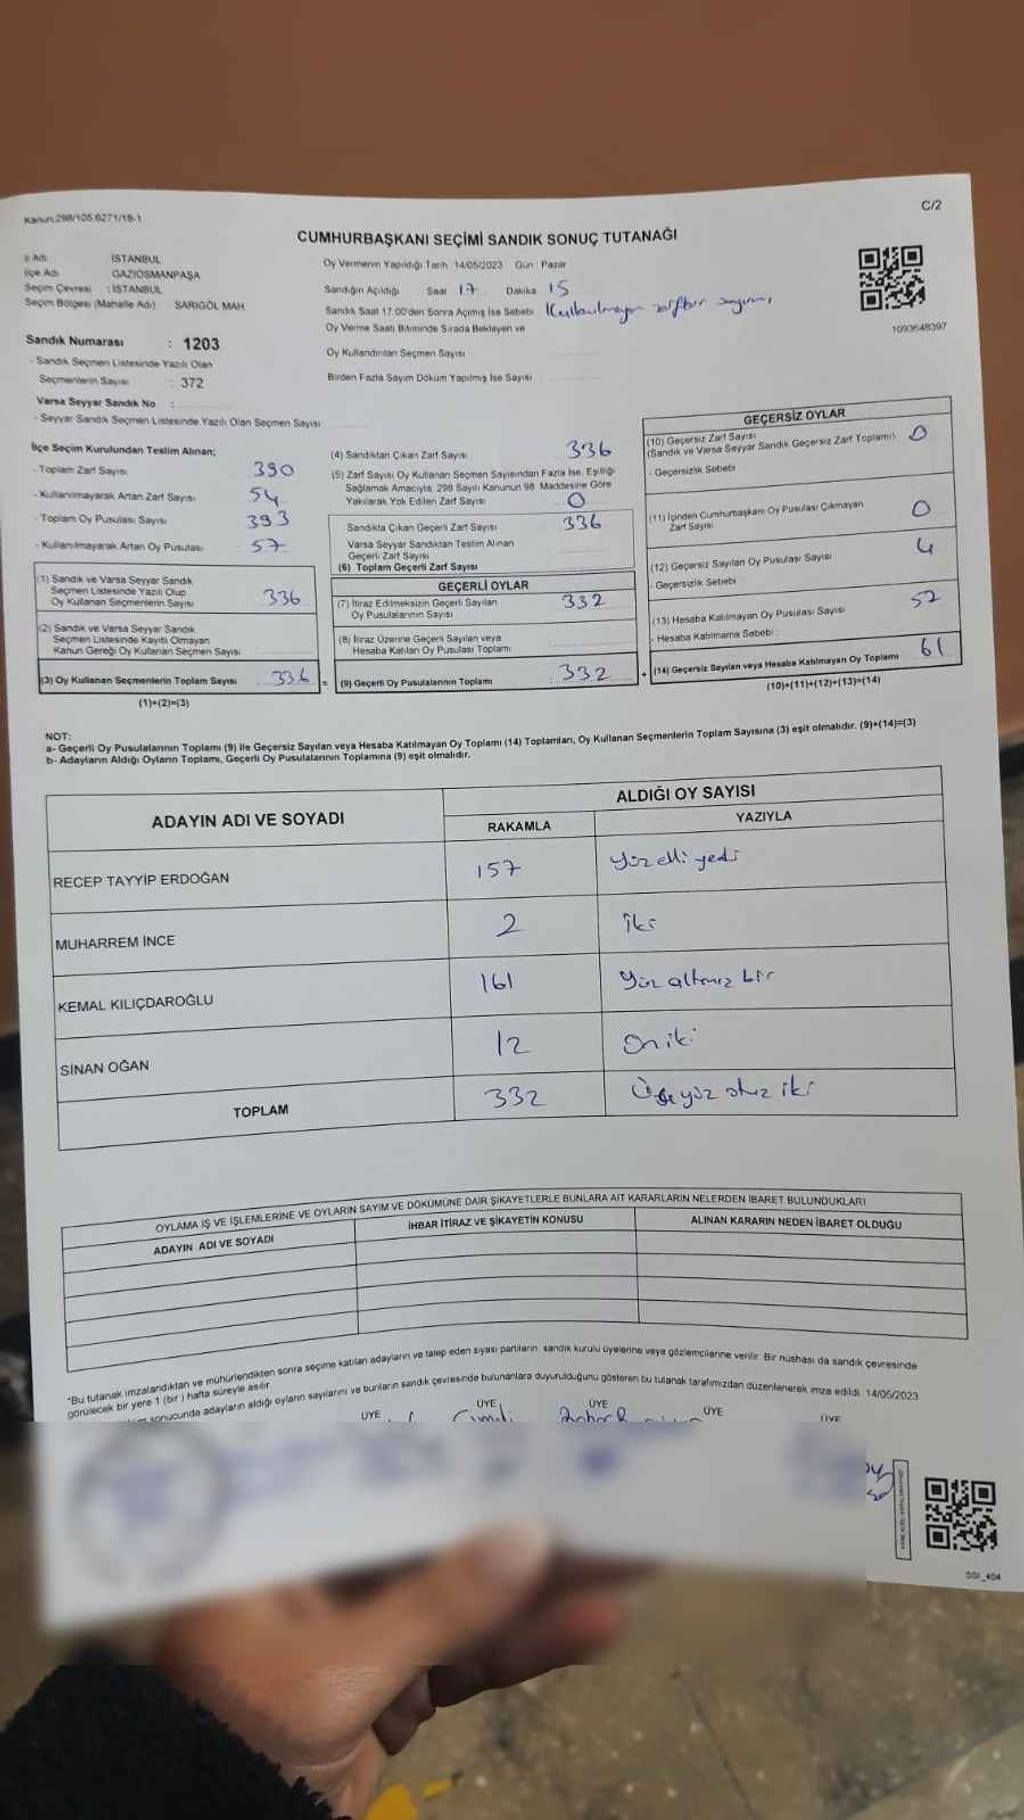 Kanun:298/105,6271/18-1
C/2
CUMHURBAŞKANI SEÇİMİ SANDIK SONUÇ TUTANAĞI
İl Adı İSTANBUL
İlçe Adı GAZİOSMANPAŞA
Seçim Çevresi : İSTANBUL
Seçim Bölgesi (Mahalle Adı) SARIGÖL MAH
Sandık Numarası : 1203
- Sandık Seçmen Listesinde Yazılı Olan
Seçmenlerin Sayısı : 372
Varsa Seyyar Sandık No :
- Seyyar Sandık Seçmen Listesinde Yazılı Olan Seçmen Sayısı
Oy Vermenin Yapıldığı Tarih :14/05/2023 Gün : Pazar
Sandığın Açıldığı Saat 17 Dakika 15
Sandık Saat 17.00'den Sonra Açılmış İse Sebebi Kullanılmayan zarfların sayımı
Oy Verme Saati Bitiminde Sırada Bekleyen ve
Oy Kullandırılan Seçmen Sayısı
Birden Fazla Sayım Döküm Yapılmış İse Sayısı
1093648397
İlçe Seçim Kurulundan Teslim Alınan;
- Toplam Zarf Sayısı 390
- Kullanılmayarak Artan Zarf Sayısı 54
- Toplam Oy Pusulası Sayısı 393
- Kullanılmayarak Artan Oy Pusulası 57
(1) Sandık ve Varsa Seyyar Sandık
Seçmen Listesinde Yazılı Olup
Oy Kullanan Seçmenlerin Sayısı 336
(2) Sandık ve Varsa Seyyar Sandık
Seçmen Listesinde Kayıtlı Olmayan
Kanun Gereği Oy Kullanan Seçmen Sayısı
(3) Oy Kullanan Seçmenlerin Toplam Sayısı 336 =
(1)+(2)=(3)
(4) Sandıktan Çıkan Zarf Sayısı 336
(5) Zarf Sayısı Oy Kullanan Seçmen Sayısından Fazla İse, Eşitliği
Sağlamak Amacıyla, 298 Sayılı Kanunun 98. Maddesine Göre
Yakılarak Yok Edilen Zarf Sayısı 0
Sandıkta Çıkan Geçerli Zarf Sayısı 336
Varsa Seyyar Sandıktan Teslim Alınan
Geçerli Zarf Sayısı
(6) Toplam Geçerli Zarf Sayısı
GEÇERLİ OYLAR
(7) İtiraz Edilmeksizin Geçerli Sayılan
Oy Pusulalarının Sayısı 332
(8) İtiraz Üzerine Geçerli Sayılan veya
Hesaba Katılan Oy Pusulası Toplamı
(9) Geçerli Oy Pusulalarının Toplamı : 332 +
GEÇERSİZ OYLAR
(10) Geçersiz Zarf Sayısı
(Sandık ve Varsa Seyyar Sandık Geçersiz Zarf Toplamı) 0
- Geçersizlik Sebebi
(11) İçinden Cumhurbaşkanı Oy Pusulası Çıkmayan
Zarf Sayısı 0
(12) Geçersiz Sayılan Oy Pusulası Sayısı 4
- Geçersizlik Sebebi
(13) Hesaba Katılmayan Oy Pusulası Sayısı 57
- Hesaba Katılmama Sebebi :
(14) Geçersiz Sayılan veya Hesaba Katılmayan Oy Toplamı 61
(10)+(11)+(12)+(13)=(14)
NOT:
a- Geçerli Oy Pusulalarının Toplamı (9) ile Geçersiz Sayılan veya Hesaba Katılmayan Oy Toplamı (14) Toplamları, Oy Kullanan Seçmenlerin Toplam Sayısına (3) eşit olmalıdır. (9)+(14)=(3)
b- Adayların Aldığı Oyların Toplamı, Geçerli Oy Pusulalarının Toplamına (9) eşit olmalıdır.
ADAYIN ADI VE SOYADI ALDIĞI OY SAYISI
RAKAMLA YAZIYLA
RECEP TAYYİP ERDOĞAN 157 Yüz elli yedi
MUHARREM İNCE 2 iki
KEMAL KILIÇDAROĞLU 161 Yüz altmış bir
SİNAN OĞAN 12 on iki
TOPLAM 332 Üçyüz otuz iki
OYLAMA İŞ VE İŞLEMLERİNE VE OYLARIN SAYIM VE DÖKÜMÜNE DAİR ŞİKAYETLERLE BUNLARA AİT KARARLARIN NELERDEN İBARET BULUNDUKLARI
ADAYIN ADI VE SOYADI İHBAR İTİRAZ VE ŞİKAYETİN KONUSU ALINAN KARARIN NEDEN İBARET OLDUĞU
*Bu tutanak imzalandıktan ve mühürlendikten sonra seçime katılan adayların ve talep eden siyasi partilerin sandık kurulu üyelerine veya gözlemcilerine verilir. Bir nüshası da sandık çevresinde
görülecek bir yere 1 (bir) hafta süreyle asılır.
sonucunda adayların aldığı oyların sayılarını ve bunların sandık çevresinde bulunanlara duyurulduğunu gösteren bu tutanak tarafımızdan düzenlenerek imza edildi. 14/05/2023
ÜYE ÜYE ÜYE ÜYE ÜYE